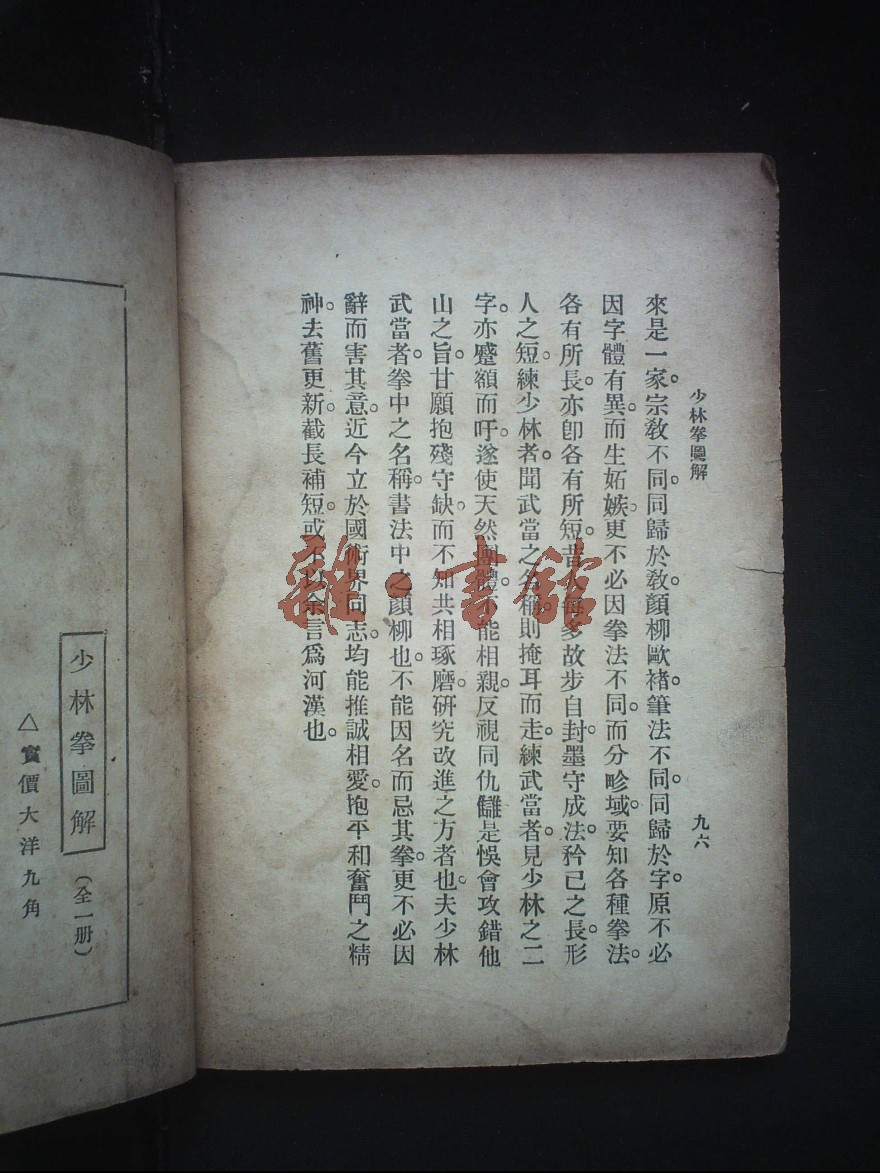 少林拳圖解
九六
來是一家。宗教不同。同歸於教。顏柳歐褚。筆法不同。同歸於字。原不必
因字體有異。而生妬嫉。更不必因拳法不同。而分畛域。要知各種拳法。
各有所長。亦卽各有所短。昔人每多故步自封。墨守成法。矜己之長。形
人之短。練少林者。聞武當之名稱。則掩耳而走。練武當者。見少林之二
字。亦蹙額而吁。遂使天然團體。不能相親。反視同仇讎。是悞會攻錯他
山之旨。甘願抱殘守缺。而不知共相琢磨。研究改進之方者也。夫少林
武當者。拳中之名稱。書法中之顏柳也。不能因名而忌其拳。更不必因
辭而害其意。近今立於國術界同志。均能推誠相愛。抱平和奮鬥之精
神。去舊更新。截長補短。或不以余言爲河漢也。
雜·書館
少林拳圖解
(全一册)
△實價大洋九角